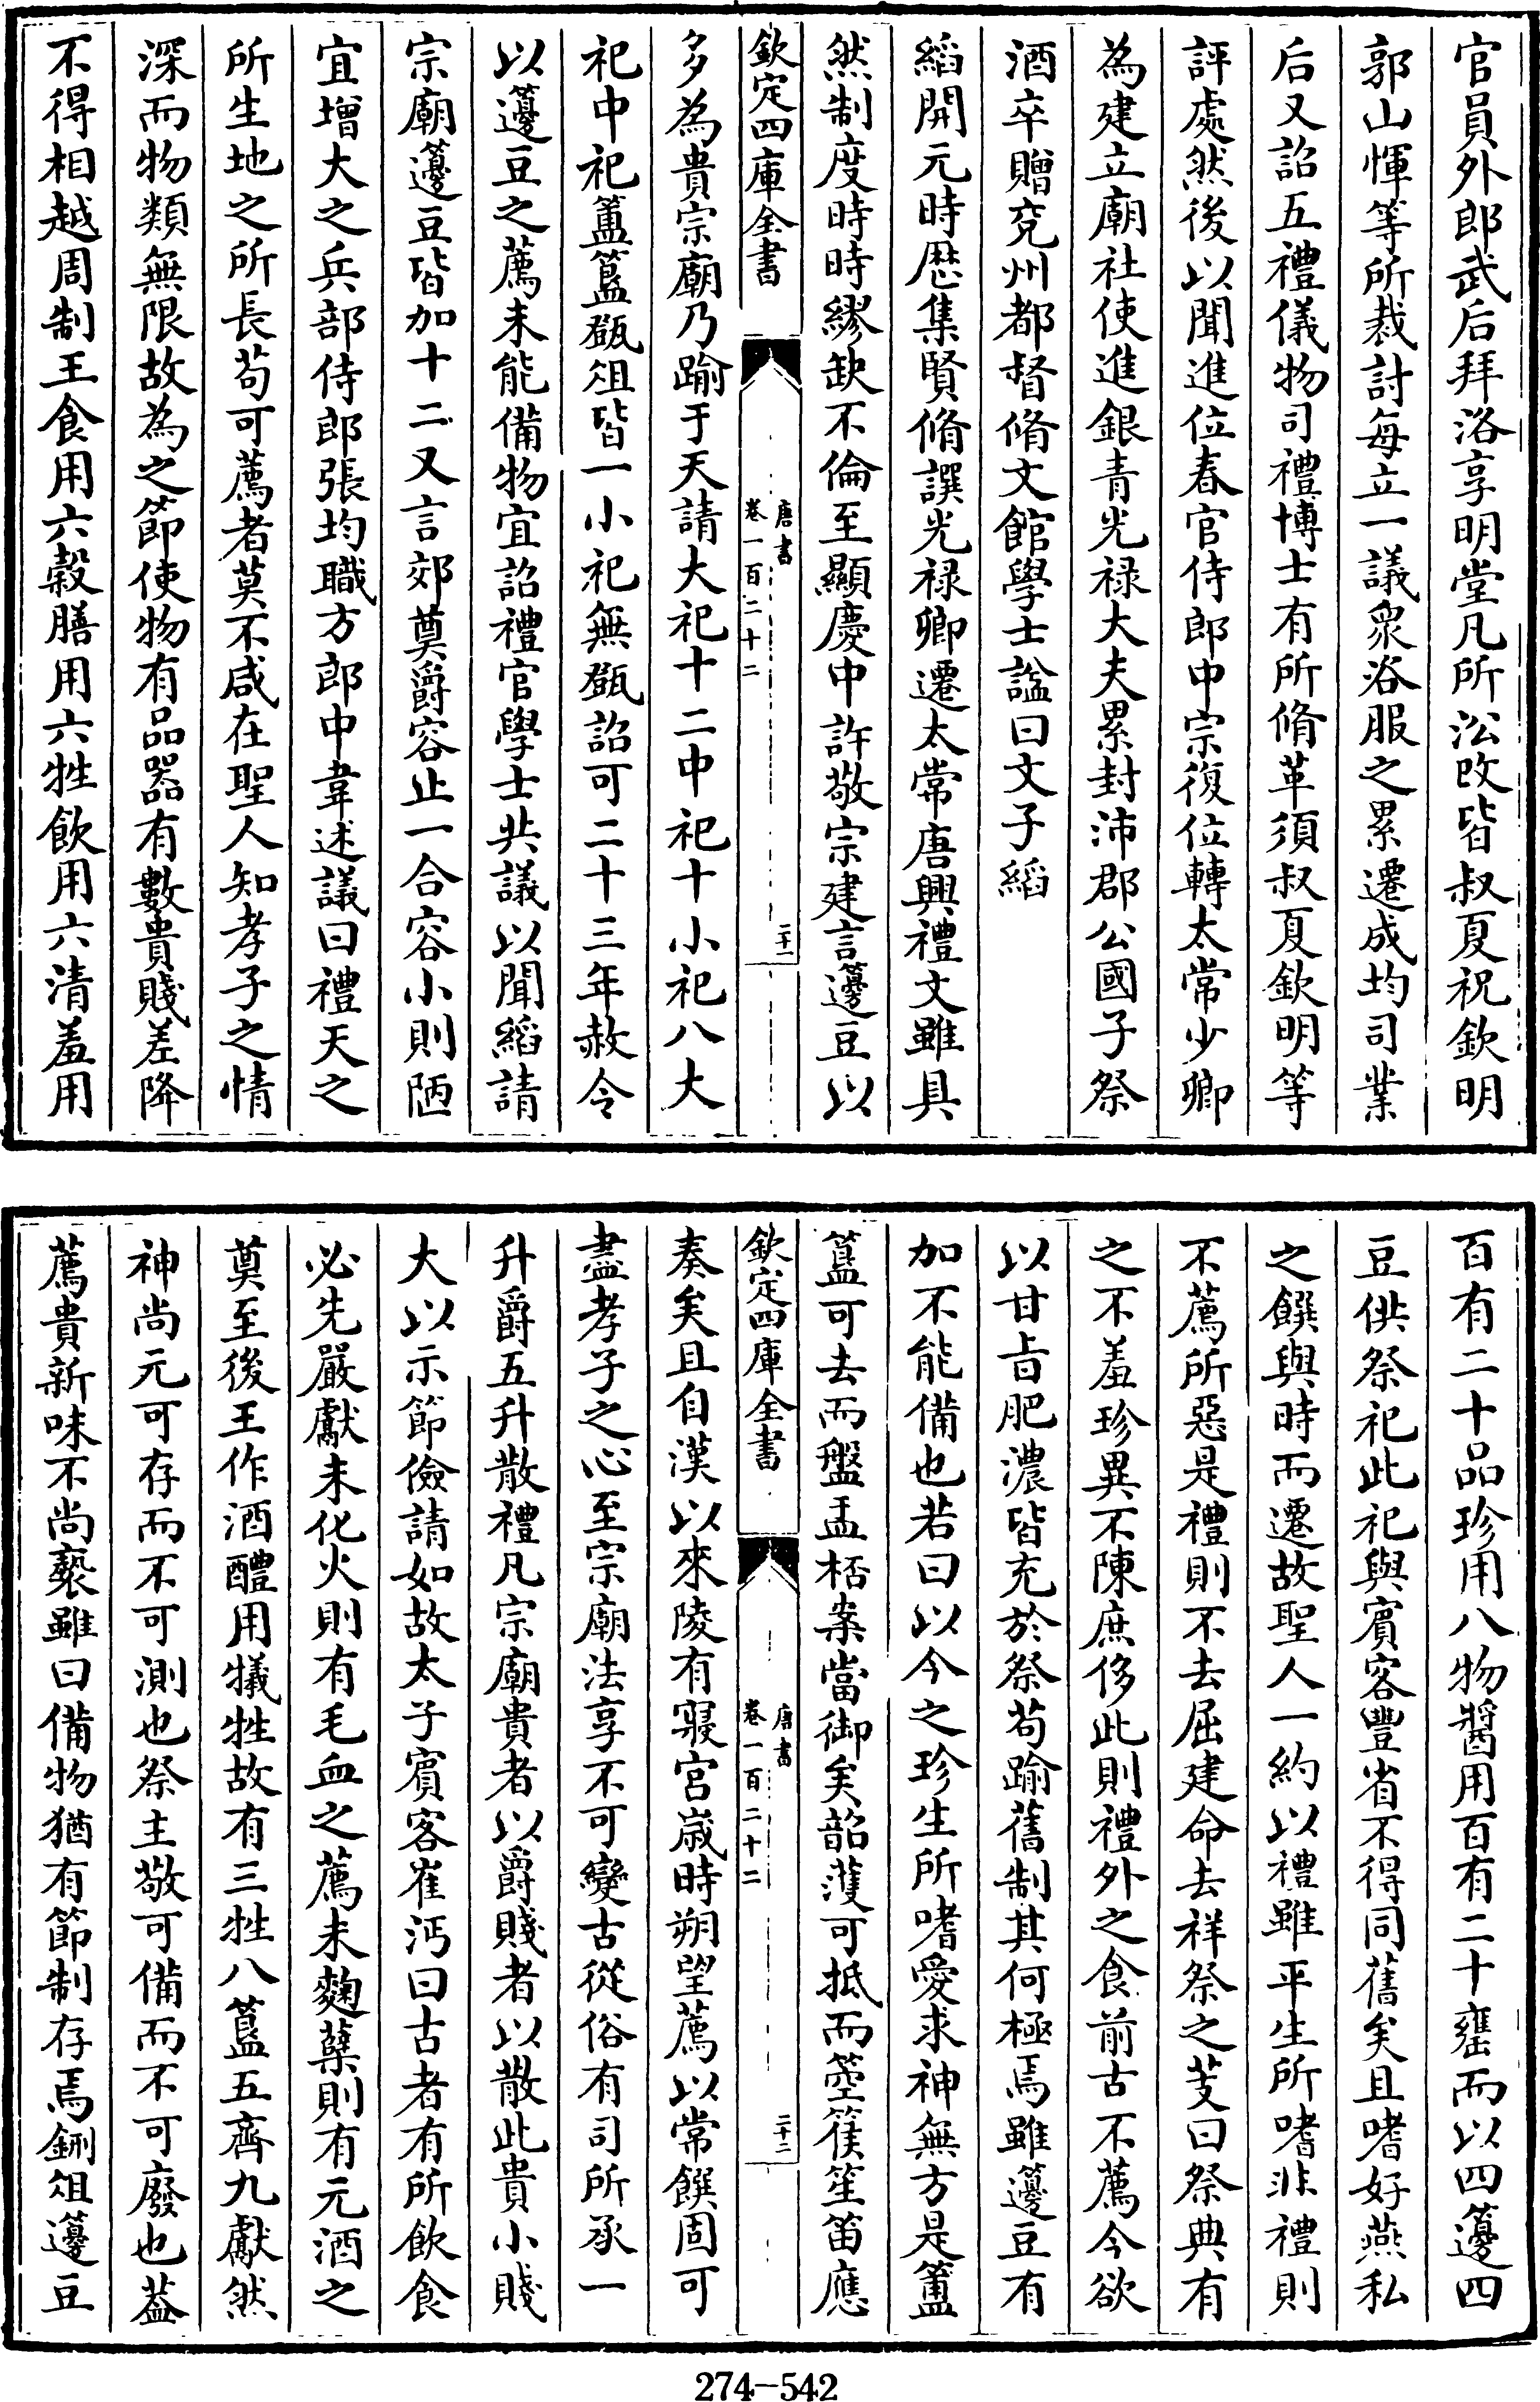 官員外郎武后拜洛享明堂凡所沿改皆叔夏祝欽明
郭山惲等所裁討每立一議衆咨服之累遷成均司業
后又詔五禮儀物司禮博士有所脩革須叔夏欽明等
評處然後以聞進位春官侍郎中宗復位轉太常少卿
為建立廟社使進銀青光禄大夫累封沛郡公國子祭
酒卒贈兖州都督脩文館學士諡曰文子縚
縚開元時歴集賢脩譔光禄卿遷太常唐興禮文雖具
然制度時時繆缺不倫至顯慶中許敬宗建言籩豆以
欽定四庫全書
唐書
卷一百二十二
二十一
多為貴宗廟乃踰于天請大祀十二中祀十小祀八大
祀中祀簠簋㽅俎皆一小祀無㽅詔可二十三年赦令
以籩豆之薦未能備物宜詔禮官學士共議以聞縚請
宗廟籩豆皆加十二又言郊奠爵容止一合容小則陋
宜增大之兵部侍郎張均職方郎中韋述議曰禮天之
所生地之所長苟可薦者莫不咸在聖人知孝子之情
深而物類無限故為之節使物有品器有數貴賤差降
不得相越周制王食用六穀膳用六牲飲用六清羞用
百有二十品珍用八物醬用百有二十罋而以四籩四
豆供祭祀此祀與賔客豐省不得同舊矣且嗜好燕私
之饌與時而遷故聖人一約以禮雖平生所嗜非禮則
不薦所惡是禮則不去屈建命去祥祭之芰曰祭典有
之不羞珍異不陳庶侈此則禮外之食前古不薦今欲
以甘旨肥濃皆充於祭苟踰舊制其何極焉雖籩豆有
加不能備也若曰以今之珍生所嗜愛求神無方是簠
簋可去而盤盂桮案當御矣韶濩可抵而箜篌笙笛應
欽定四庫全書
唐書
卷一百二十二
二十二
奏矣且自漢以來陵有寢宮嵗時朔望薦以常饌固可
盡孝子之心至宗廟法享不可變古從俗有司所承一
升爵五升散禮凡宗廟貴者以爵賤者以散此貴小賤
大以示節儉請如故太子賓客崔沔曰古者有所飲食
必先嚴獻未化火則有毛血之薦未麴櫱則有元酒之
奠至後王作酒醴用犧牲故有三牲八簋五齊九獻然
神尚元可存而不可測也祭主敬可備而不可廢也葢
薦貴新味不尚䙝雖曰備物猶有節制存焉鉶俎籩豆
274-542